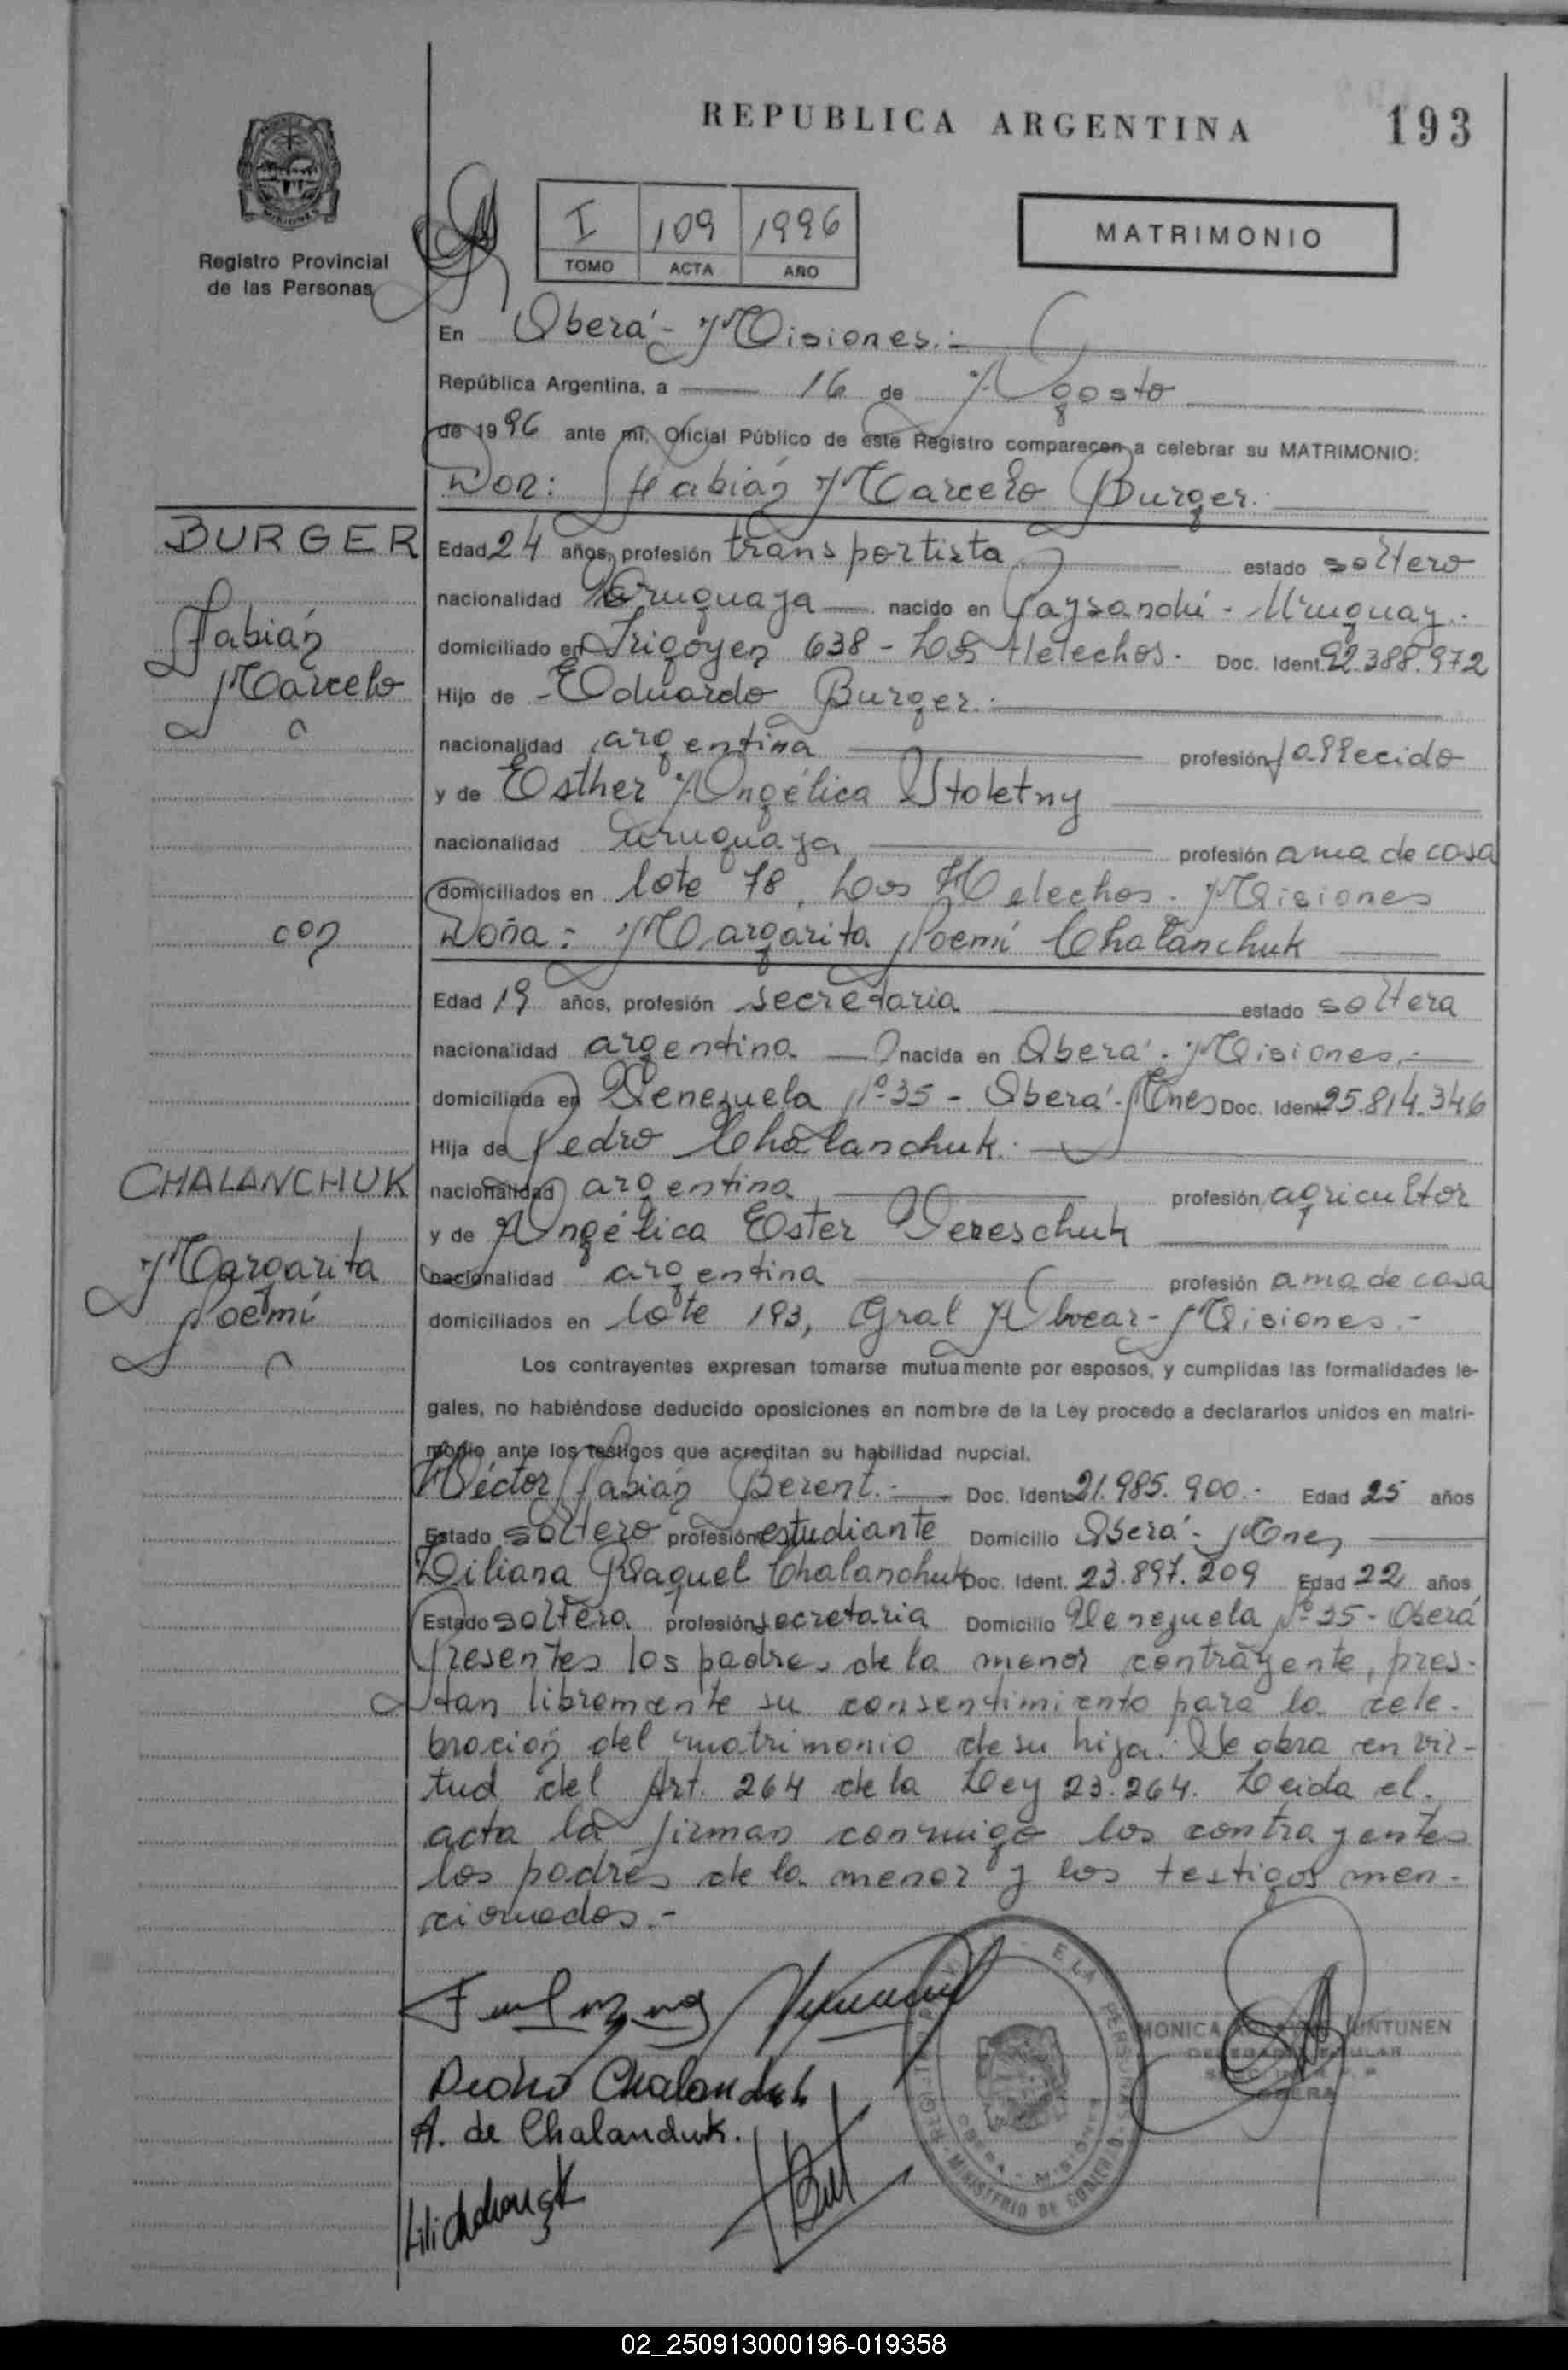 REPUBLICA ARGENTINA
193
Registro Provincial
de las Personas
I 109 1996
TOMO ACTA AÑO
MATRIMONIO
En Oberá - Misiones.-
República Argentina, a 16 de Agosto
de 1996 ante mí, Oficial Público de este Registro comparecen a celebrar su MATRIMONIO:
Don: Fabián Marcelo Burger.
BURGER
Fabián
Marcelo
Edad 24 años, profesión transportista estado soltero
nacionalidad Uruguaya nacido en Paysandú - Uruguay.
domiciliado en Irigoyen 638 - Los Helechos. Doc. Ident. 92.388.972
Hijo de Eduardo Burger.
nacionalidad argentina profesión fallecido
y de Esther Angélica Stoletny
nacionalidad uruguaya profesión ama de casa
domiciliados en lote 78, Los Helechos - Misiones
con
Doña: Margarita Noemí Chalanchuk
Edad 19 años, profesión secretaria estado soltera
nacionalidad argentina nacida en Oberá - Misiones.-
domiciliada en Venezuela Nº 35 - Oberá - Mnes Doc. Ident. 25.814.346
Hija de Pedro Chalanchuk.
CHALANCHUK
Margarita
Noemí
nacionalidad argentina profesión agricultor
y de Angélica Ester Vereschuk
nacionalidad argentina profesión ama de casa
domiciliados en lote 193, Gral Alvear - Misiones.-
Los contrayentes expresan tomarse mutuamente por esposos, y cumplidas las formalidades le-
gales, no habiéndose deducido oposiciones en nombre de la Ley procedo a declararlos unidos en matri-
monio ante los testigos que acreditan su habilidad nupcial.
Héctor Fabián Berent.- Doc. Ident. 21.985.900.- Edad 25 años
Estado soltero profesión estudiante Domicilio Oberá - Mnes
Liliana Raquel Chalanchuk Doc. Ident. 23.897.209 Edad 22 años
Estado soltera profesión secretaria Domicilio Venezuela Nº 35 - Oberá
Presentes los padres de la menor contrayente, pres-
tan libremente su consentimiento para la cele-
bración del matrimonio de su hija. Se obra en vir-
tud del Art. 264 de la Ley 23.264. Leida el
acta la firman conmigo los contrayentes
los padres de la menor y los testigos men-
cionados.-
MONICA UNTUNEN
OBERA
MINISTERIO DE GOBIERNO
Pedro Chalanchuk
A. de Chalanchuk.
02_250913000196-019358